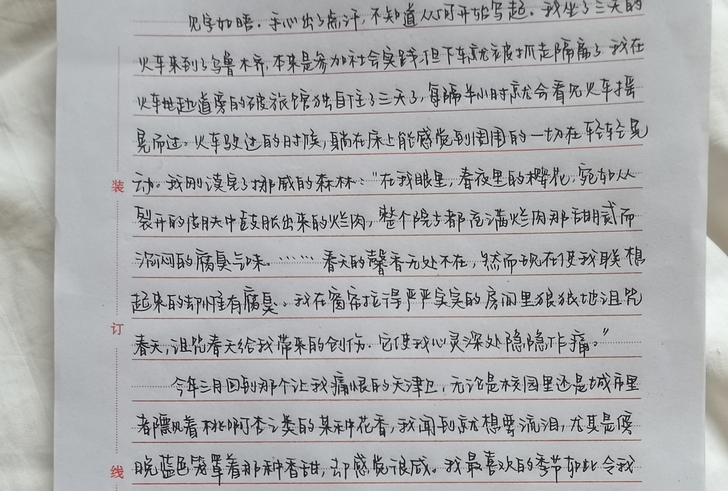 见字如晤。手心出了点汗，不知道从何开始写起。我坐了三天的
火车来到了乌鲁木齐，本来是参加社会实践，但下车就被抓走隔离了。我在
火车地道旁的破旅馆独自住了三天了，每隔半小时就会看见火车摇
晃而过。火车驶过的时候，躺在床上能感觉到周围的一切在轻轻晃
装
动。我刚读完了挪威的森林：“在我眼里，春夜里的樱花，宛如从
裂开的皮肤中鼓胀出来的烂肉，整个院子都充满烂肉那甜腻而
沉闷的腐臭气味。……春天的馨香无处不在，然而现在使我联想
起来的却惟有腐臭。我在窗帘拉得严严实实的房间里狠狠地诅咒
订
春天，诅咒春天给我带来的创伤。它使我心灵深处隐隐作痛。”
今年三月回到那个让我痛恨的天津卫，无论是校园里还是城市里
都飘着桃啊杏之类的某种花香，我闻到就想要流泪，尤其是傍
线
晚蓝色笼罩着那种香甜，却感觉很咸。我最喜欢的季节如此令我